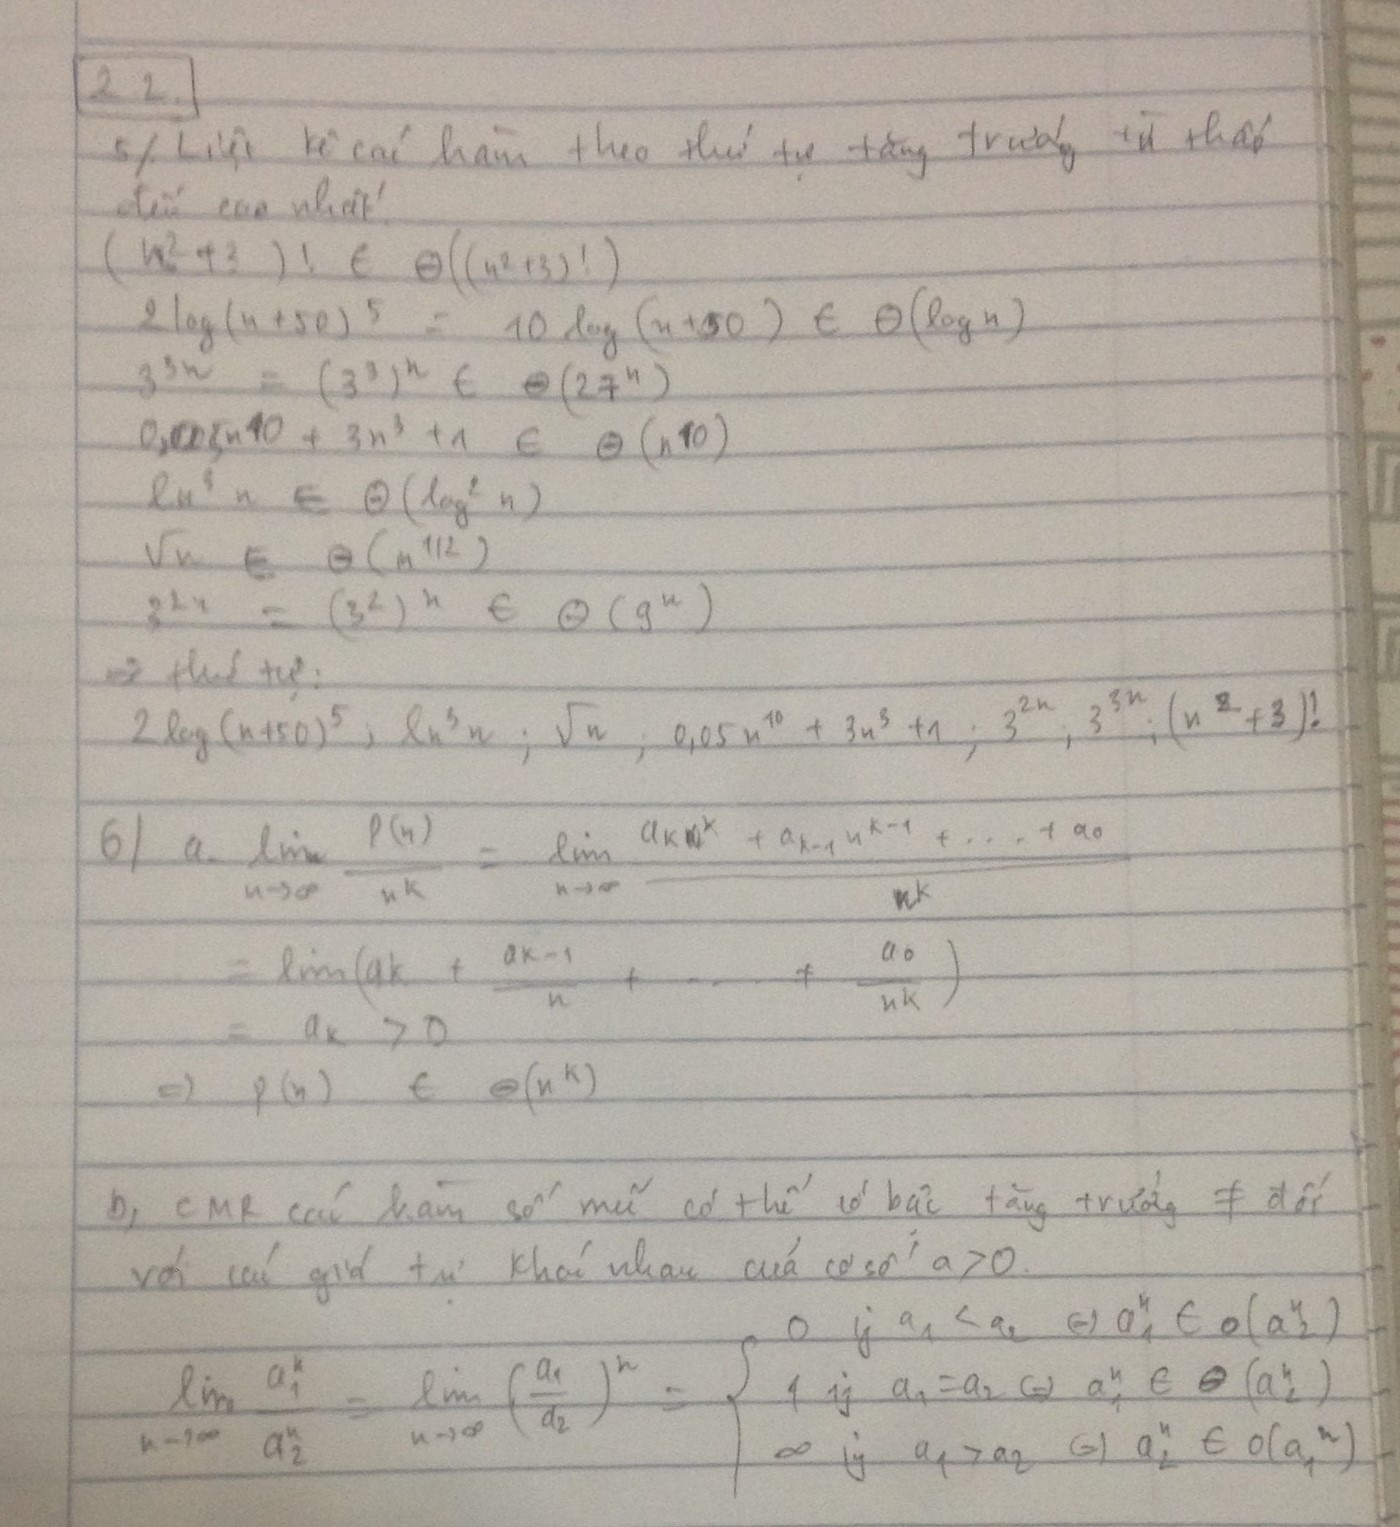 2 2.
5/ Liệt kê các hàm theo thứ tự tăng trưởng từ thấp
đến cao nhất
(n²+3)! ∈ Θ((n²+3)!)
2log(n+50)⁵ = 10 log(n+50) ∈ Θ(log n)
3³ⁿ = (3³)ⁿ ∈ Θ(27ⁿ)
0,005n¹⁰ + 3n³ + 1 ∈ Θ(n¹⁰)
ln³ n ∈ Θ(log² n)
√n ∈ Θ(n^1/2)
3²ⁿ = (3²)ⁿ ∈ Θ(9ⁿ)
⇒ thứ tự:
2log(n+50)⁵ ; ln³n ; √n ; 0,05n¹⁰ + 3n³ + 1 ; 3²ⁿ ; 3³ⁿ ; (n²+3)!
6/ a. lim n→∞ P(n)/n^k = lim n→∞ (a_k n^k + a_k-1 n^k-1 + .... + a₀)/n^k
= lim(a_k + a_k-1/n + ..... + a₀/n^k)
= a_k > 0
⇒ P(n) ∈ Θ(n^k)
b, CMR các hàm số mũ có thể có bậc tăng trưởng ≠ đối
với các giá trị khác nhau của cơ số a>0.
lim n→∞ a₁ⁿ/a₂ⁿ = lim n→∞ (a₁/a₂)ⁿ = { 0 if a₁ < a₂ ⇔ a₁ⁿ ∈ o(a₂ⁿ)
1 if a₁ = a₂ ⇔ a₁ⁿ ∈ Θ(a₂ⁿ)
∞ if a₁ > a₂ ⇔ a₂ⁿ ∈ o(a₁ⁿ)